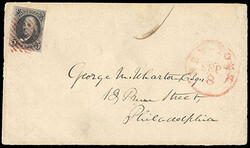 George M. Wharton Esq.
18 Prune Street,
Philadelphia